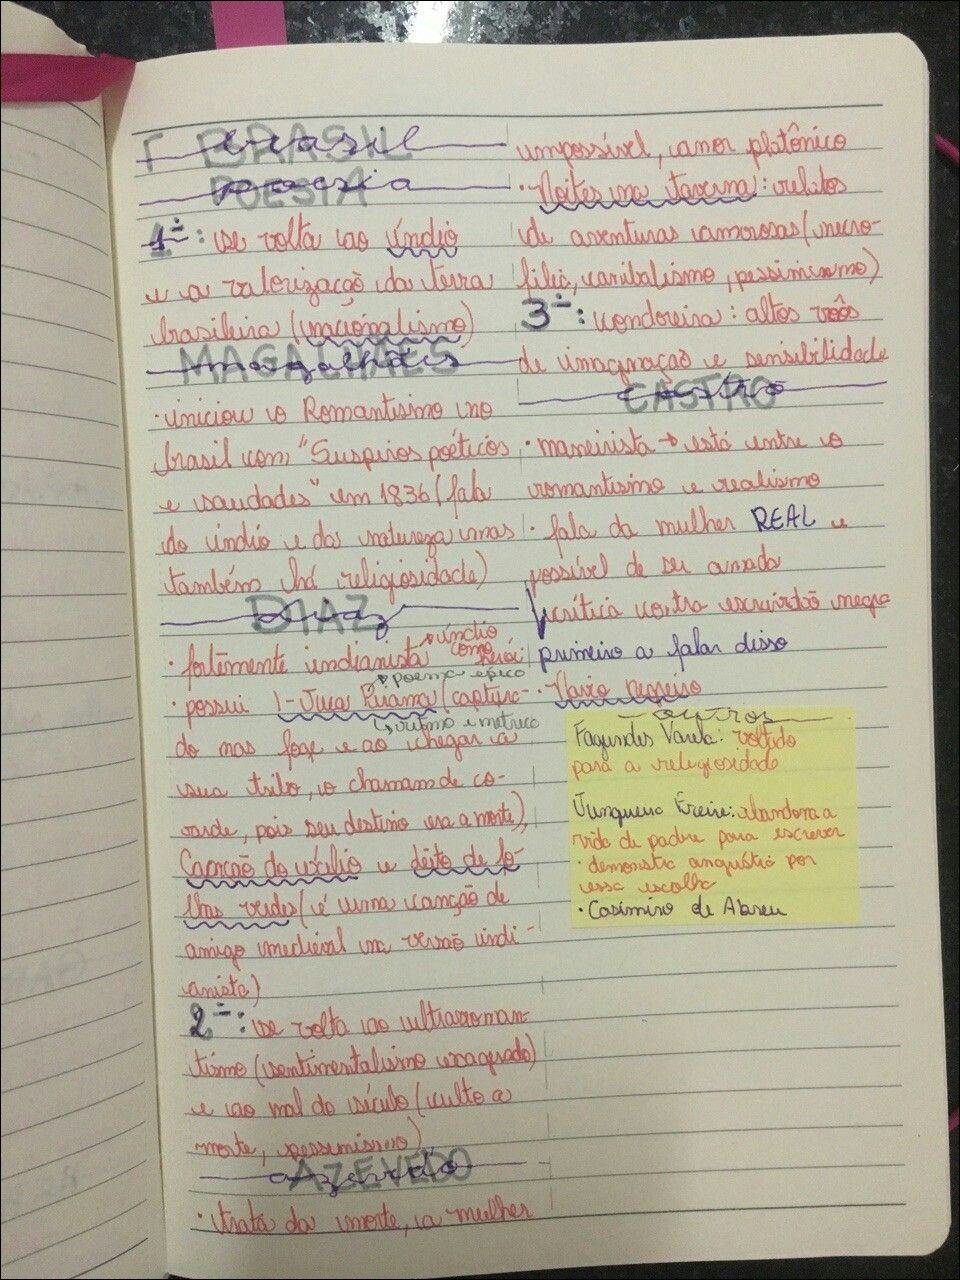 BRASIL
POESIA
1ª: se volta ao índio
e a valorização da terra
brasileira (nacionalismo)
MAGALHÃES
· iniciou o Romantismo no
brasil com "Suspiros poéticos
e saudades" em 1836 (fala
do índio e da natureza mas
também há religiosidade)
DIAZ
· fortemente indianista → índio como herói
· possui I-Juca Pirama (captura-
→ poema épico
↳ ritmo e métrica
do mas foge e ao chegar a
sua tribo, o chamam de co-
varde, pois seu destino era a morte),
Canção do exílio e leito de fo-
lhas verdes (é uma canção de
amigo medieval na versão indi-
anista)
2ª: se volta ao ultraroman-
tismo (sentimentalismo exagerado)
e ao mal do século (culto a
morte, pessimismo)
AZEVEDO
· trata da morte, a mulher
impossível, amor platônico
· Noites na taverna: relatos
de aventuras amorosas (necro-
filia, canibalismo, pessimismo)
3ª: condoreira: altos voôs
de imaginação e sensibilidade
CASTRO
· maneirista → está entre o
romantismo e realismo
· fala da mulher REAL e
possível de ser amada
crítica contra escravidão negra
primeiro a falar disso
· Navio negreiro
Outros
Fagundes Varela: voltado
para a religiosidade
Junqueira Freire: abandona a
vida de padre para escrever
· demonstra angústia por
essa escolha
· Casimiro de Abreu